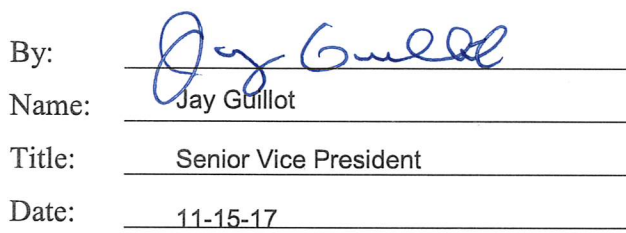 By: Jay Guillot
Name: Jay Guillot
Title: Senior Vice President
Date: 11-15-17